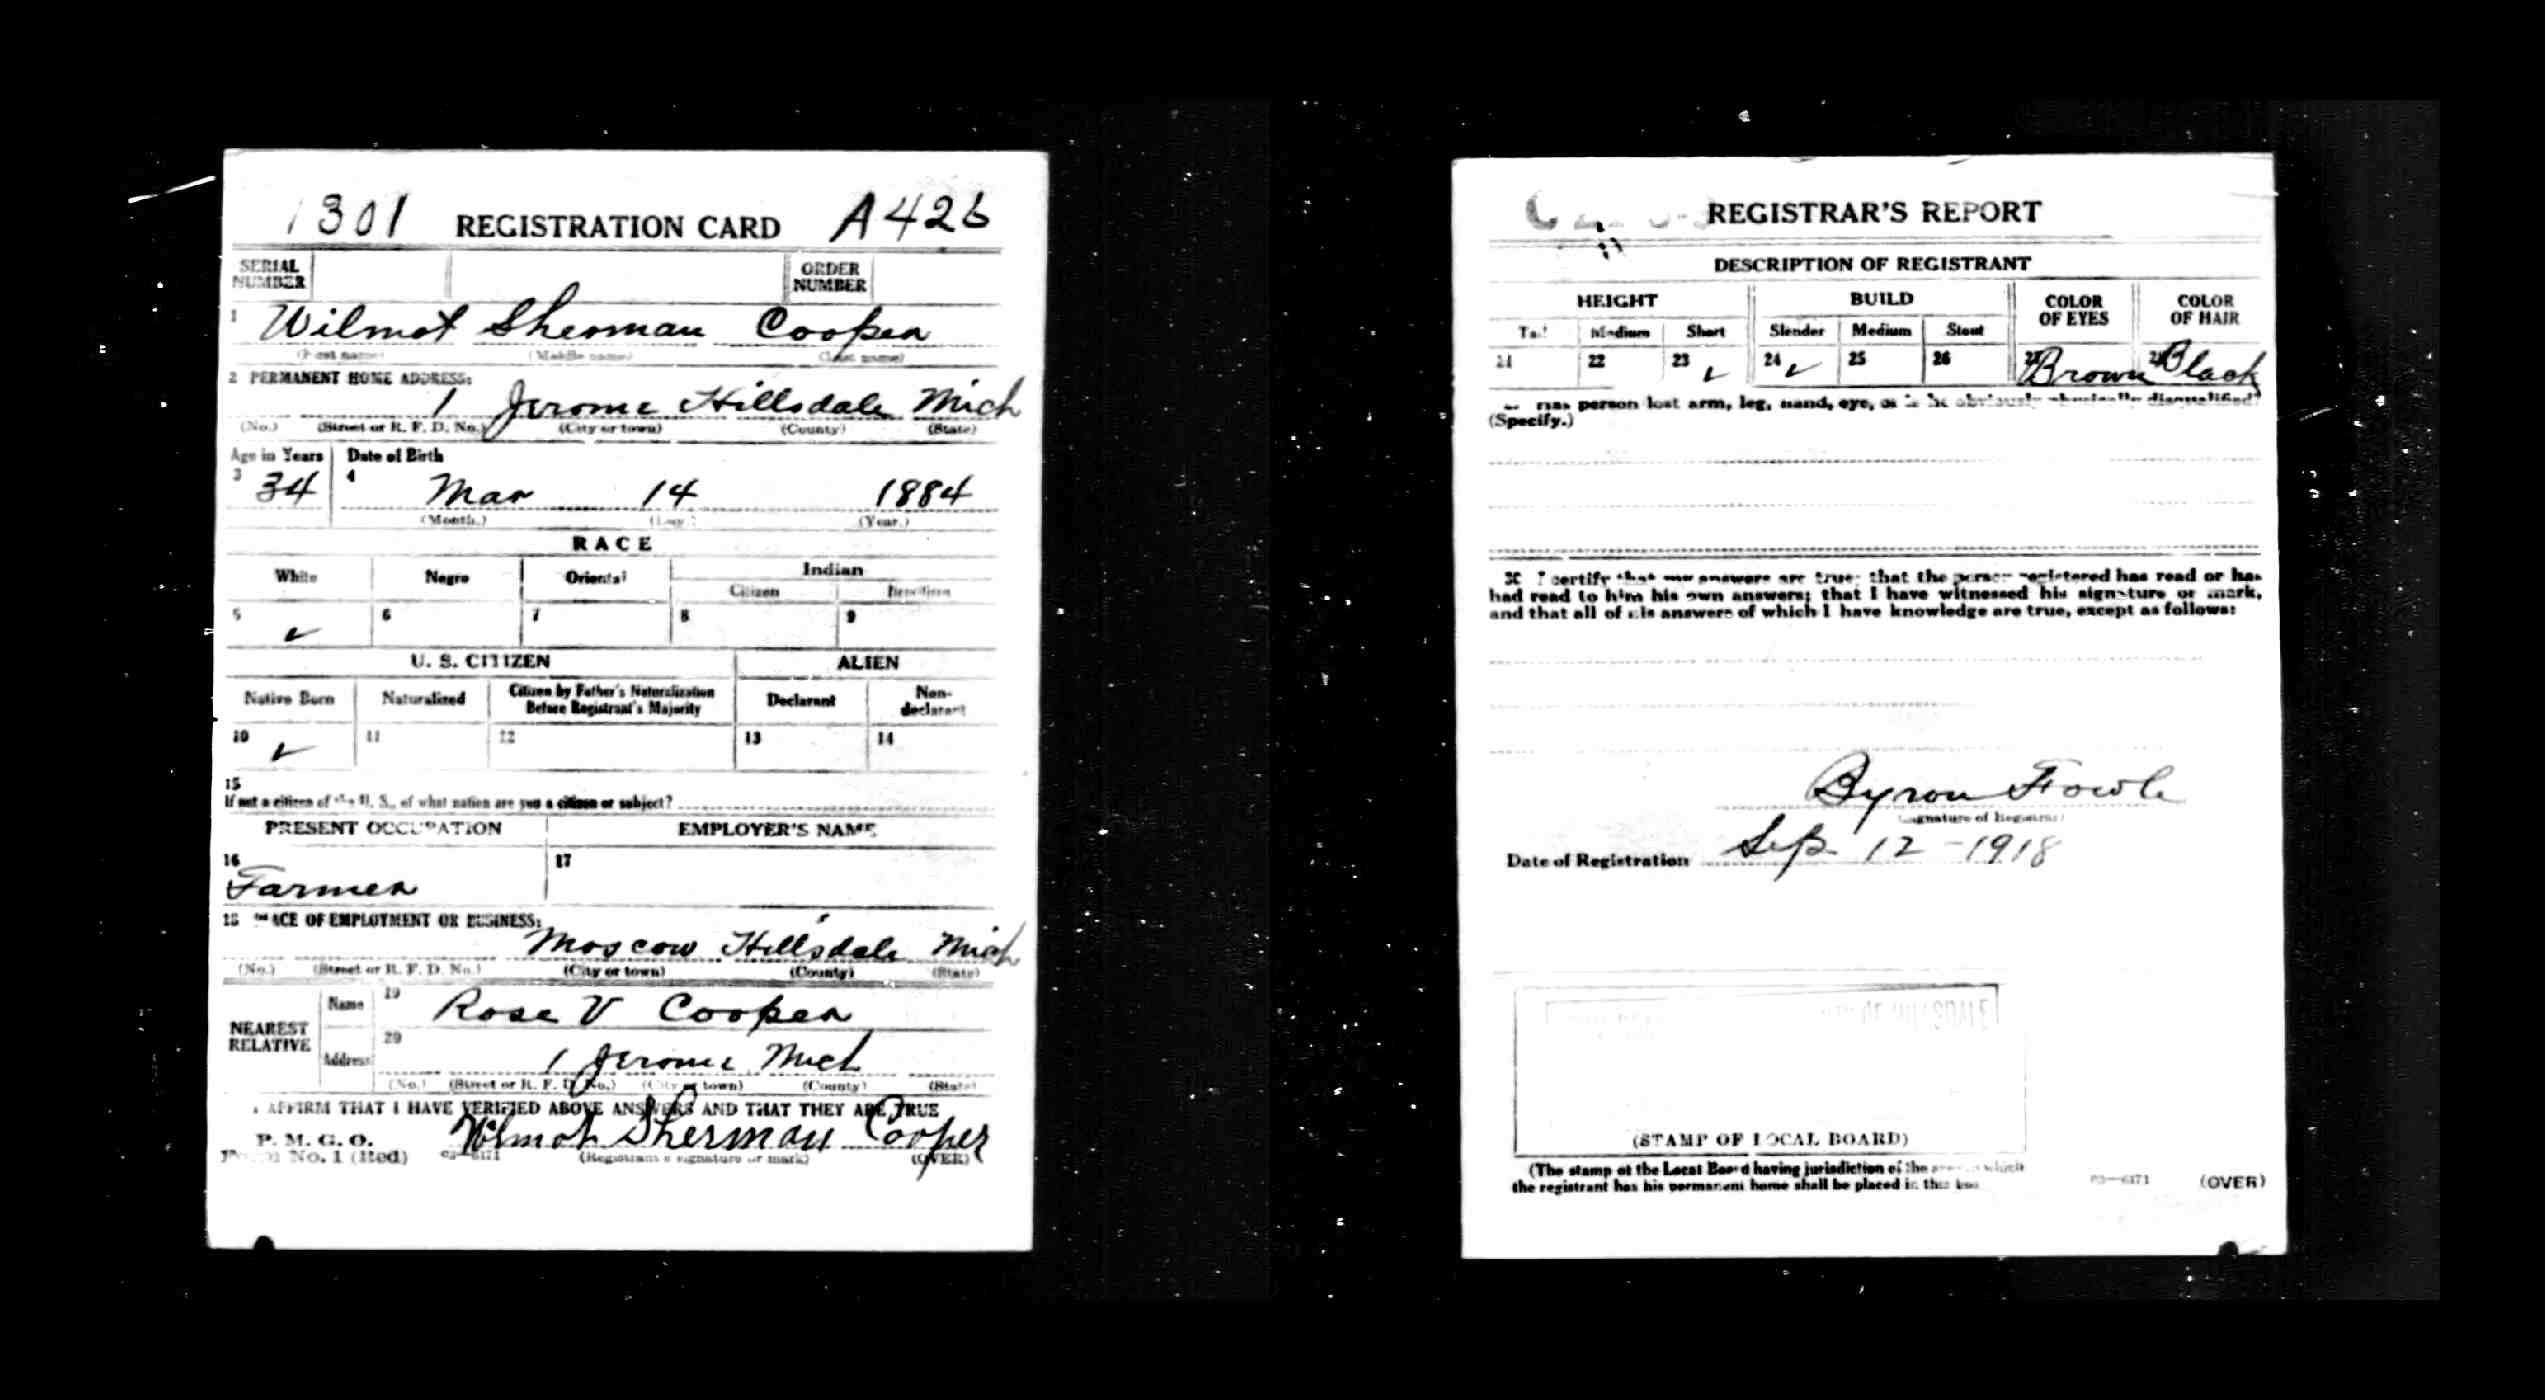 1301 REGISTRATION CARD A426
SERIAL NUMBER ORDER NUMBER
1 Wilmot Sherman Cooper
(First name) (Middle name) (Last name)
2 PERMANENT HOME ADDRESS:
1 Jerome Hillsdale Mich
(No.) (Street or R. F. D. No.) (City or town) (County) (State)
Age in Years Date of Birth
3 34 4 Mar 14 1884
(Month.) (Day.) (Year.)
RACE
White Negro Oriental Indian
Citizen Noncitizen
5 ✓ 6 7 8 9
U. S. CITIZEN ALIEN
Native Born Naturalized Citizen by Father's Naturalization Before Registrant's Majority Declarant Non-declarant
10 ✓ 11 12 13 14
15
If not a citizen of the U. S., of what nation are you a citizen or subject?
PRESENT OCCUPATION EMPLOYER'S NAME
16 17
Farmer
18 PLACE OF EMPLOYMENT OR BUSINESS:
Moscow Hillsdale Mich
(No.) (Street or R. F. D. No.) (City or town) (County) (State)
NEAREST RELATIVE Name 19 Rose V Cooper
Address 20 1 Jerome Mich
(No.) (Street or R. F. D. No.) (City or town) (County) (State)
I AFFIRM THAT I HAVE VERIFIED ABOVE ANSWERS AND THAT THEY ARE TRUE
P. M. G. O. Wilmot Sherman Cooper
Form No. 1 (Red) 03—6171 (Registrant's signature or mark) (OVER)
REGISTRAR'S REPORT
DESCRIPTION OF REGISTRANT
HEIGHT BUILD COLOR OF EYES COLOR OF HAIR
Tall Medium Short Slender Medium Stout
21 22 23 ✓ 24 ✓ 25 26 27 Brown 28 Black
29 Has person lost arm, leg, hand, eye, or is he obviously physically disqualified?
(Specify.)
30 I certify that my answers are true; that the person registered has read or has
had read to him his own answers; that I have witnessed his signature or mark,
and that all of his answers of which I have knowledge are true, except as follows:
Byron Fowle
(Signature of Registrar)
Date of Registration Sep 12 - 1918
(STAMP OF LOCAL BOARD)
(The stamp of the Local Board having jurisdiction of the area in which
the registrant has his permanent home shall be placed in this box.)
03—6171 (OVER)